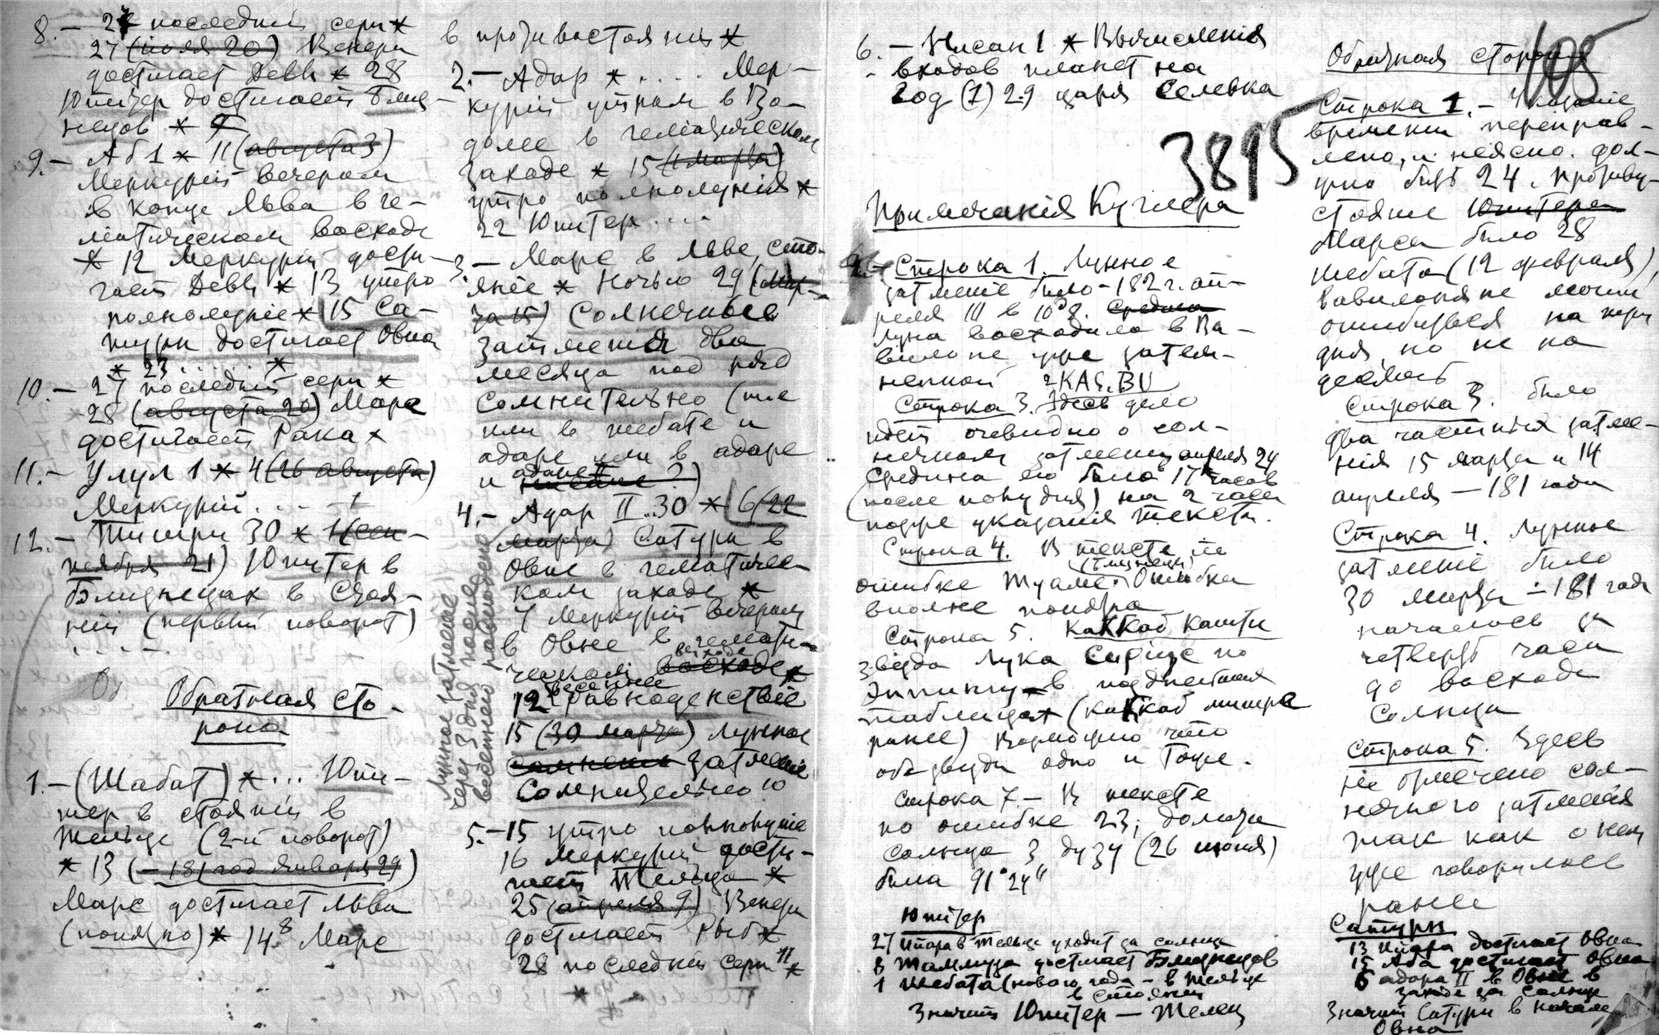 8. — 27 последній серп *
27 (июля 20) Венера
достигает Девы * 28
Юпитер достигает Близ-
нецов *
9. — Аб 1 * 11 (августа 3)
Меркурій вечером
в конце Льва в ге-
ліатическом восходе
* 12 Меркурій дости-
гает Девы * 13 утро
полнолуніе * 15 Са-
турн достигает Овна
* 23 ..... *
10. — 27 последній серп *
28 (августа 20) Марс
достигает Рака *
11. — Улул 1 * 4 (26 августа)
Меркурій . . . .
12. — Тишри 30 * 1 (сен-
тября 21) Юпитер в
Близнецах в стоя-
ніи (первый поворот)
. . . .
Обратная сто-
рона
1. — (Шабат) * ... Юпи-
тер в стояніи в
Тельце (2-й поворот)
* 13 (— 181 год января 29)
Марс достигает Льва
(попятно) * 14.8 Марс
в противостояніи *
2. — Адар * . . . . Мер-
курій утром в Во-
долее в геліатическом
заходе * 15 (1 марта)
утро полнолунія *
22 Юпитер ....
3. — Марс в Льве, сто-
яніе * Ночью 29 (мар-
та 15) Солнечные
затменія два
месяца под ряд
сомнительно (или
или в шебате и
адаре или в адаре
и адаре II
нисане ?)
4. — Адар II. 30 * 6 (22
марта) Сатурн в
Овне в геліатичес-
ком заходе *
7 Меркурій вечером
в Овне в геліати-
ческом восходе *
весеннее
12 равноденствіе
15 (30 марта) лунное
затменіе
Сомнительно
Лунное затменіе
через 3 дня после
весеннего равноденствія
5. — 15 утро полнолуніе
16 Меркурій дости-
гает Тельца *
25 (апреля 9) Венера
достигает Рыб *
28 последній серп *
6. — Нисан 1 * Вычисленія
входов планет на
год (1) 29 царя Селевка
3895
Примечанія Куглера
Строка 1. Лунное
затменіе было — 182 г. ап-
реля 111 в 10 8. Средина
Луна восходила в Ва-
вилоне уже затем-
ненной 2KAS.BU
Строка 3. Здесь дело
идет очевидно о сол-
нечном затменіи апреля 24
Средина его была 17 часов
(после полудня) на 2 часа
позже указанія текста.
Строка 4. В тексте по
(близнецы)
ошибке Туаме. Ошибка
вполне понятна
Строка 5. Каккаб Кашти
звезда Лука Сиріус по
Эппингу — в позднейших
таблицах (каккаб мишре
ранее) Вероятно что
оба звезды одно и тоже.
Строка 7 — В тексте
по ошибке 23; долгота
солнца 3 дузу (26 июня)
была 91° 24"
Юпитер
27 Ияра в Тельце уходит за солнце
8 Таммуза достигает Близнецов
1 Шебата (нового года — в Тельце
в стояніи
Значит Юпитер — Телец
105
Обратная сторона
Строка 1. — Указаніе
времени переправ-
лено, и неясно. дол-
жно быть 24. Противу-
стояніе Юпитера
Марса было 28
шебата (12 февраля),
вавилоняне могли
ошибиться на три
дня, но не на
десять
Строка 3. Было
два частных затме-
нія 15 марта и 14
апреля — 181 года
Строка 4. Лунное
затменіе было
30 марта — 181 года
началось за
четверть часа
до восхода
Солнца
Строка 5. Здесь
не отмечено сол-
нечного затменія
так как о нем
уже говорилось
ранее
Сатурн
13 Ияра достигает Овна
15 Аба достигает Овна
6 адара II в Овне в
заходе за солнце
Значит Сатурн в начале
Овна